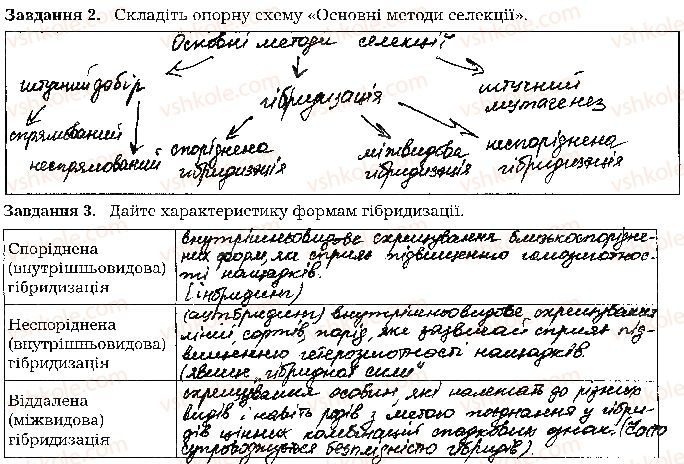 Завдання 2. Складіть опорну схему «Основні методи селекції».
Основні методи селекції
штучний добір
гібридизація
штучний
мутагенез
спрямований
неспрямований
споріднена
гібридизація
міжвидова
гібридизація
неспоріднена
гібридизація
Завдання 3. Дайте характеристику формам гібридизації.
Споріднена
(внутрішньовидова)
гібридизація
внутрішньовидове схрещування близькоспорідне-
них форм, як сприяє підвищенню гомозиготнос-
ті нащадків.
(інбридинг)
Неспоріднена
(внутрішньовидова)
гібридизація
(аутбридинг) внутрішньовидове схрещування
ліній, сортів, порід, яке зазвичай сприяє під-
вищенню гетерозиготності нащадків.
(явище „гібридної сили"
Віддалена
(міжвидова)
гібридизація
схрещування особин, які належать до різних
видів і навіть родів з метою поєднання у гібри-
дів цінних комбінацій спадкових ознак. (часто
супроводжується безплідністю гібридів)
vshkole.com